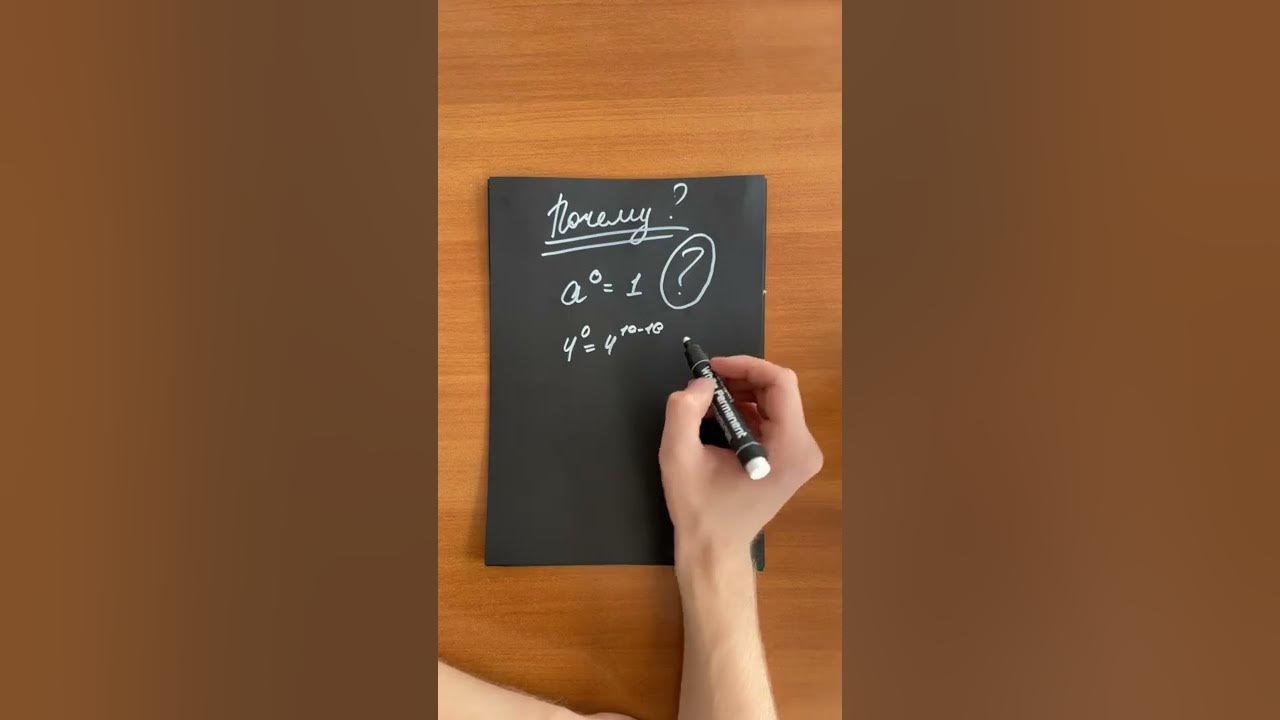 Почему?
a⁰ = 1 ?
4⁰ = 4¹⁰⁻¹⁰
White Permanent